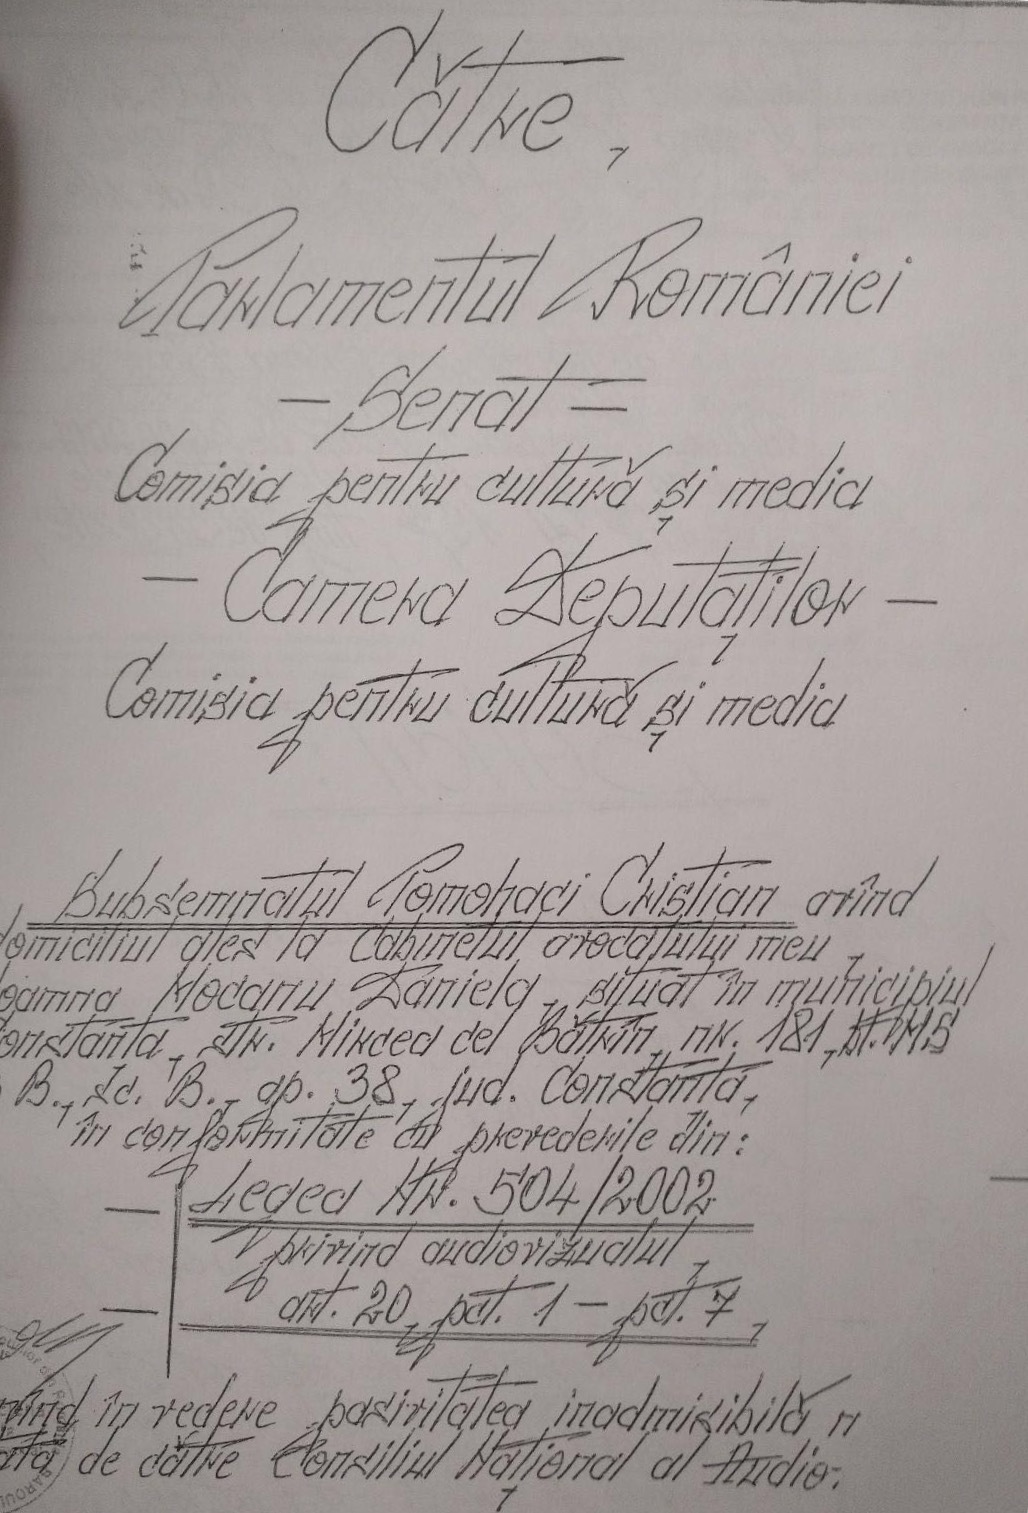 Către,
Parlamentul României
- Senat -
Comisia pentru cultură și media
- Camera Deputaților -
Comisia pentru cultură și media
Subsemnatul Pomohaci Cristian avînd
domiciliul ales la Cabinetul avocatului meu,
doamna Mocanu Daniela, situat în municipiul
Constanța, str. Mircea cel Bătrîn, nr. 181,
B., Sc. B., ap. 38, jud. Constanța,
în conformitate cu prevederile din:
- Legea Nr. 504/2002
privind audiovizualul,
- art. 20, pct. 1 - pct. 7,
în vedere pasivitatea inadmisibilă
de către Consiliul Național al Audio-